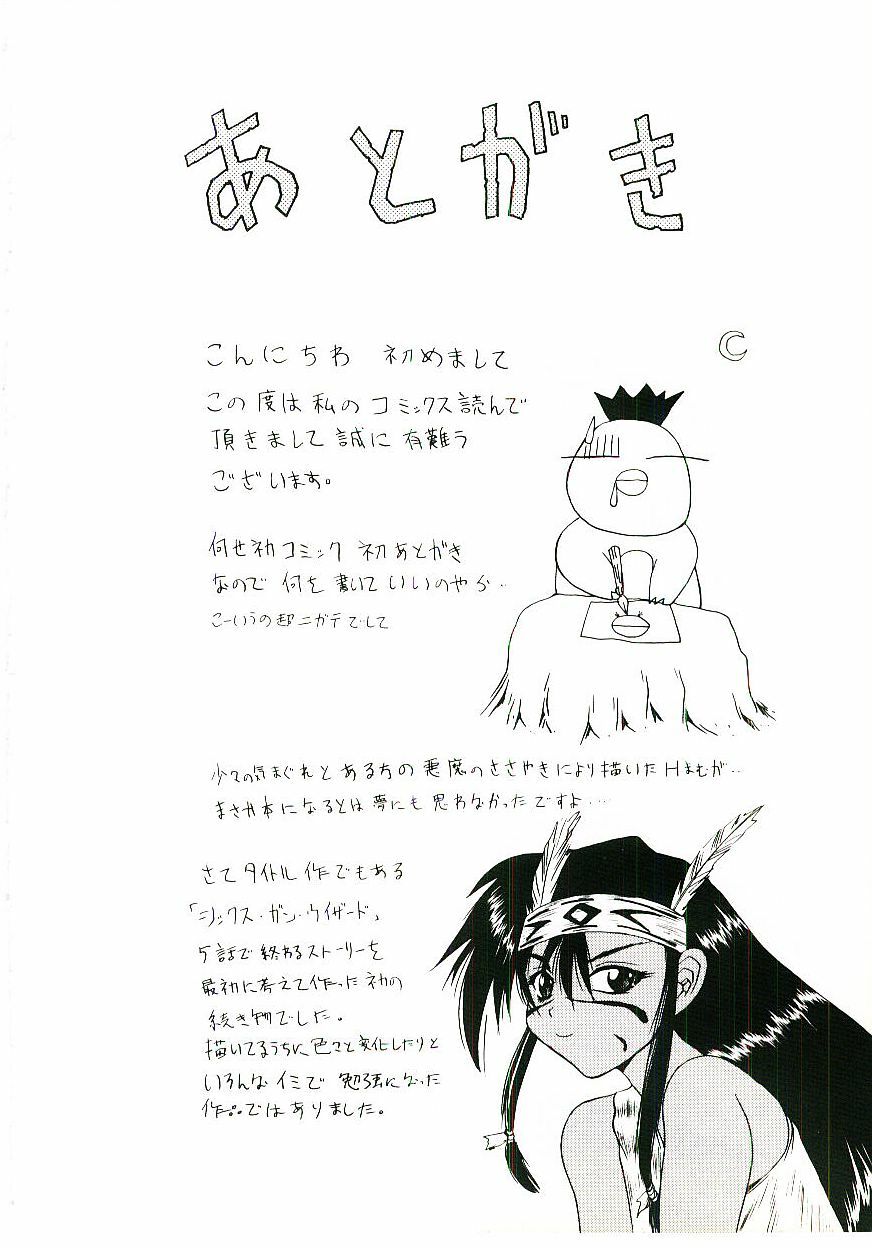 あとがき
こんにちわ 初めまして
この度は私のコミックス読んで
頂きまして誠に有難う
ございます。
何せ初コミック 初あとがき
なので何を書いていいのやら‥
こーいうの超ニガテでして
少々の気まぐれとある方の悪魔のささやきにより描いたHまむが‥
まさか本になるとは夢にも思わなかったですよ‥‥
さてタイトル作でもある
「シックス・ガン・ウィザード」
5話で終わるストーリーを
最初に考えて作った初の
続き物でした。
描いてるうちに色々と変化したりと
いろんなイミで勉強になった
作品ではありました。